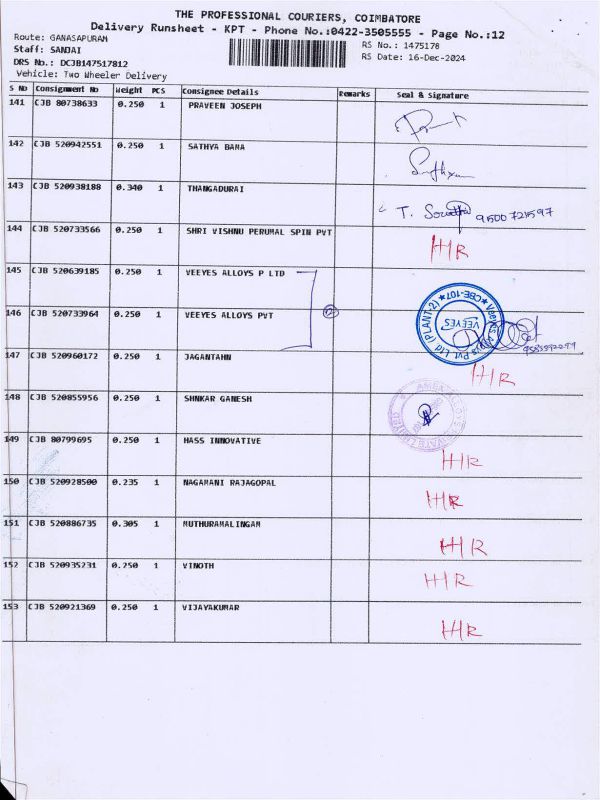 THE PROFESSIONAL COURIERS, COIMBATORE
Delivery Runsheet - KPT - Phone No.:0422-3505555 - Page No.:12
Route: GANASAPURAM
RS No.: 1475178
Staff: SANJAI
RS Date: 16-Dec-2024
DRS No.: DCJB147517812
Vehicle: Two Wheeler Delivery
S No Consignment No Weight PCS Consignee Details Remarks Seal & Signature
141 CJB 80738633 0.250 1 PRAVEEN JOSEPH
142 CJB 520942551 0.250 1 SATHYA BAMA
143 CJB 520938188 0.340 1 THANGADURAI T. 9500721597
144 CJB 520733566 0.250 1 SHRI VISHNU PERUMAL SPIN PVT HR
145 CJB 520639185 0.250 1 VEEYES ALLOYS P LTD
146 CJB 520733964 0.250 1 VEEYES ALLOYS PVT
Veeyes Pvt Ltd (PLANT-2) ★ CBE-107 ★
VEEYES
147 CJB 520960172 0.250 1 JAGANTAHN HR
148 CJB 520855956 0.250 1 SHNKAR GANESH
149 CJB 80799695 0.250 1 HASS INNOVATIVE HR
150 CJB 520928500 0.235 1 NAGAMANI RAJAGOPAL HR
151 CJB 520886735 0.305 1 MUTHURAMALINGAM HR
152 CJB 520935231 0.250 1 VINOTH HR
153 CJB 520921369 0.250 1 VIJAYAKUMAR HR